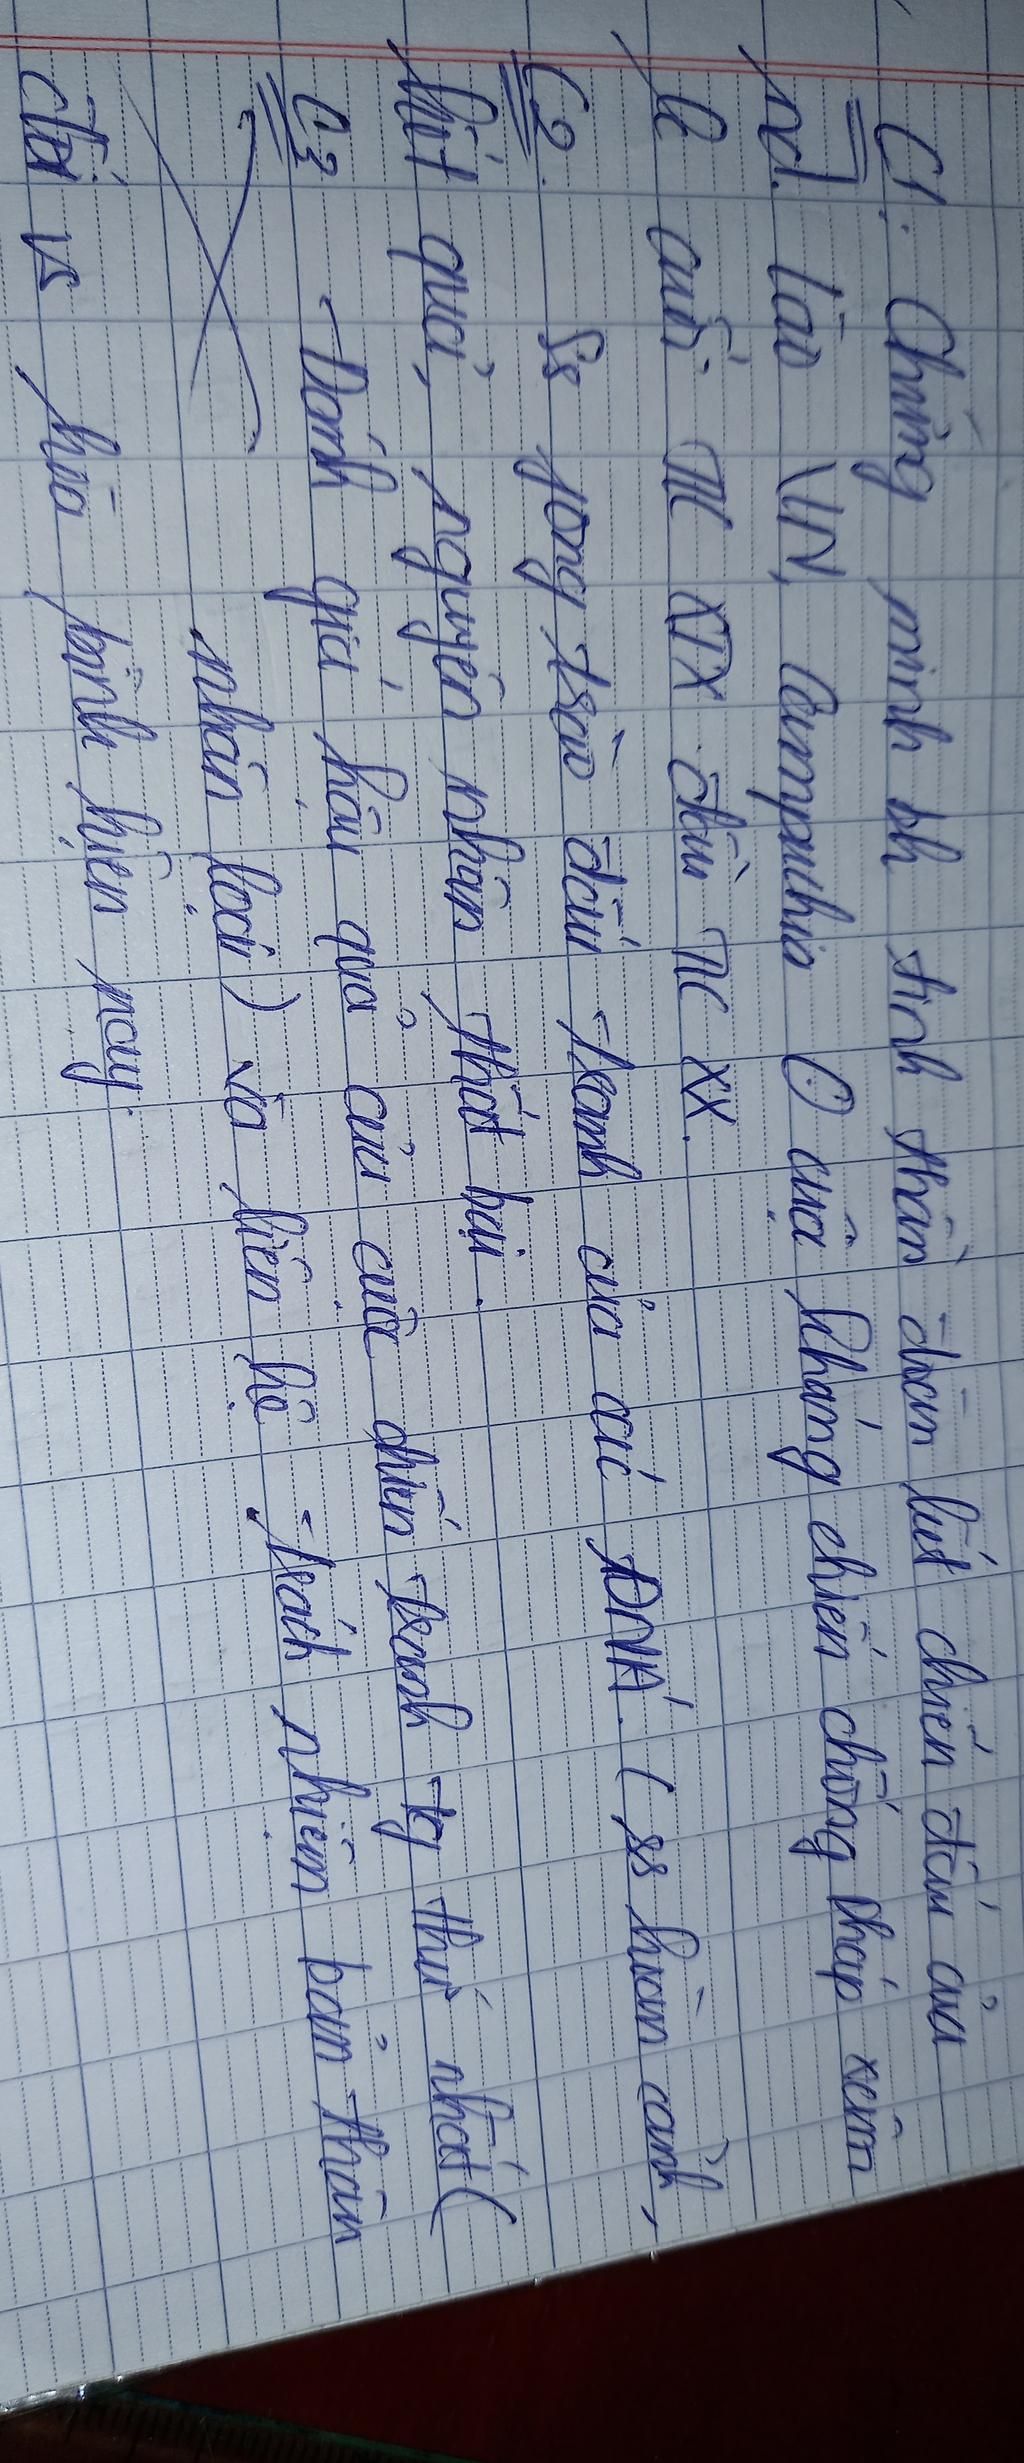 C1: Chứng minh bh tinh thần đoàn kết chiến đấu của
nd. Lào VN, Campuchia O cuộc kháng chiến chống Pháp xâm
lc cuối TK XIX đầu TK XX.
C2. Ss pong trào đấu tranh của các ĐNÁ. (ss hoàn cảnh,
kết quả, nguyên nhân thất bại.
C3 Đánh giá hậu quả của cuộc chiến tranh tg thứ nhất (
nhân loại) và liên hệ trách nhiệm bản thân
đối vs hòa bình hiện nay.